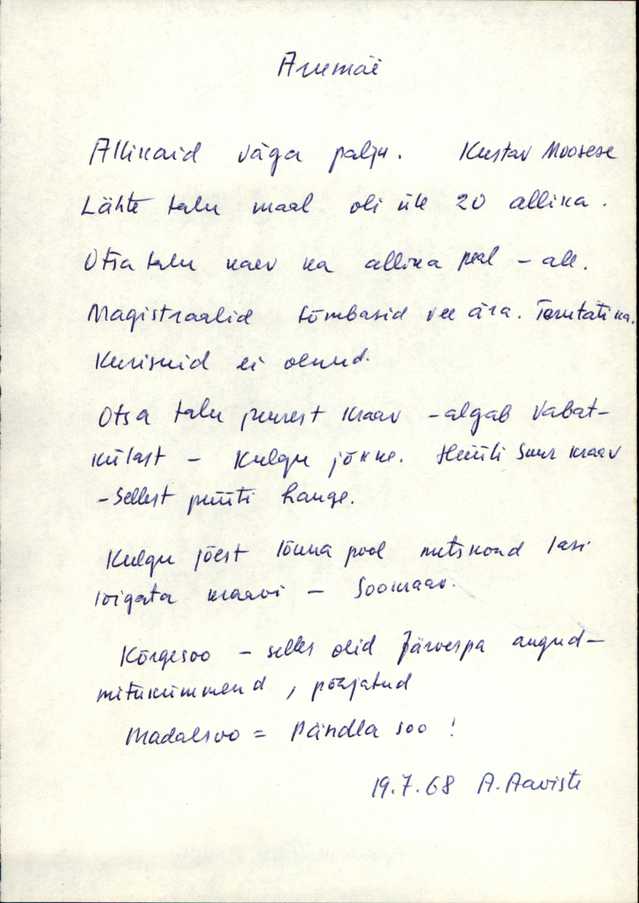 Arumäe
Allikaid väga palju. Kustav Moosese
Lähte talu maal oli üle 20 allika.
Otsa talu kaev ka allika peal – all.
Magistraalid tõmbasid vee ära.
Kurisuid ei olnud.
Otsa talu juurest kraav – algab Vabat-
külast – Kulgu jõkke. Hüüti Suur kraav
– Sellest püüti hauge.
Kulgu jõest lõuna pool metskond lasi
lõigata kraavi – Sookraav.
Kõrgesoo – selles olid Järvespa augud –
mitukümmend, põhjatud
Madalsoo = Pändla soo!
19.7.68 A. Aaviste